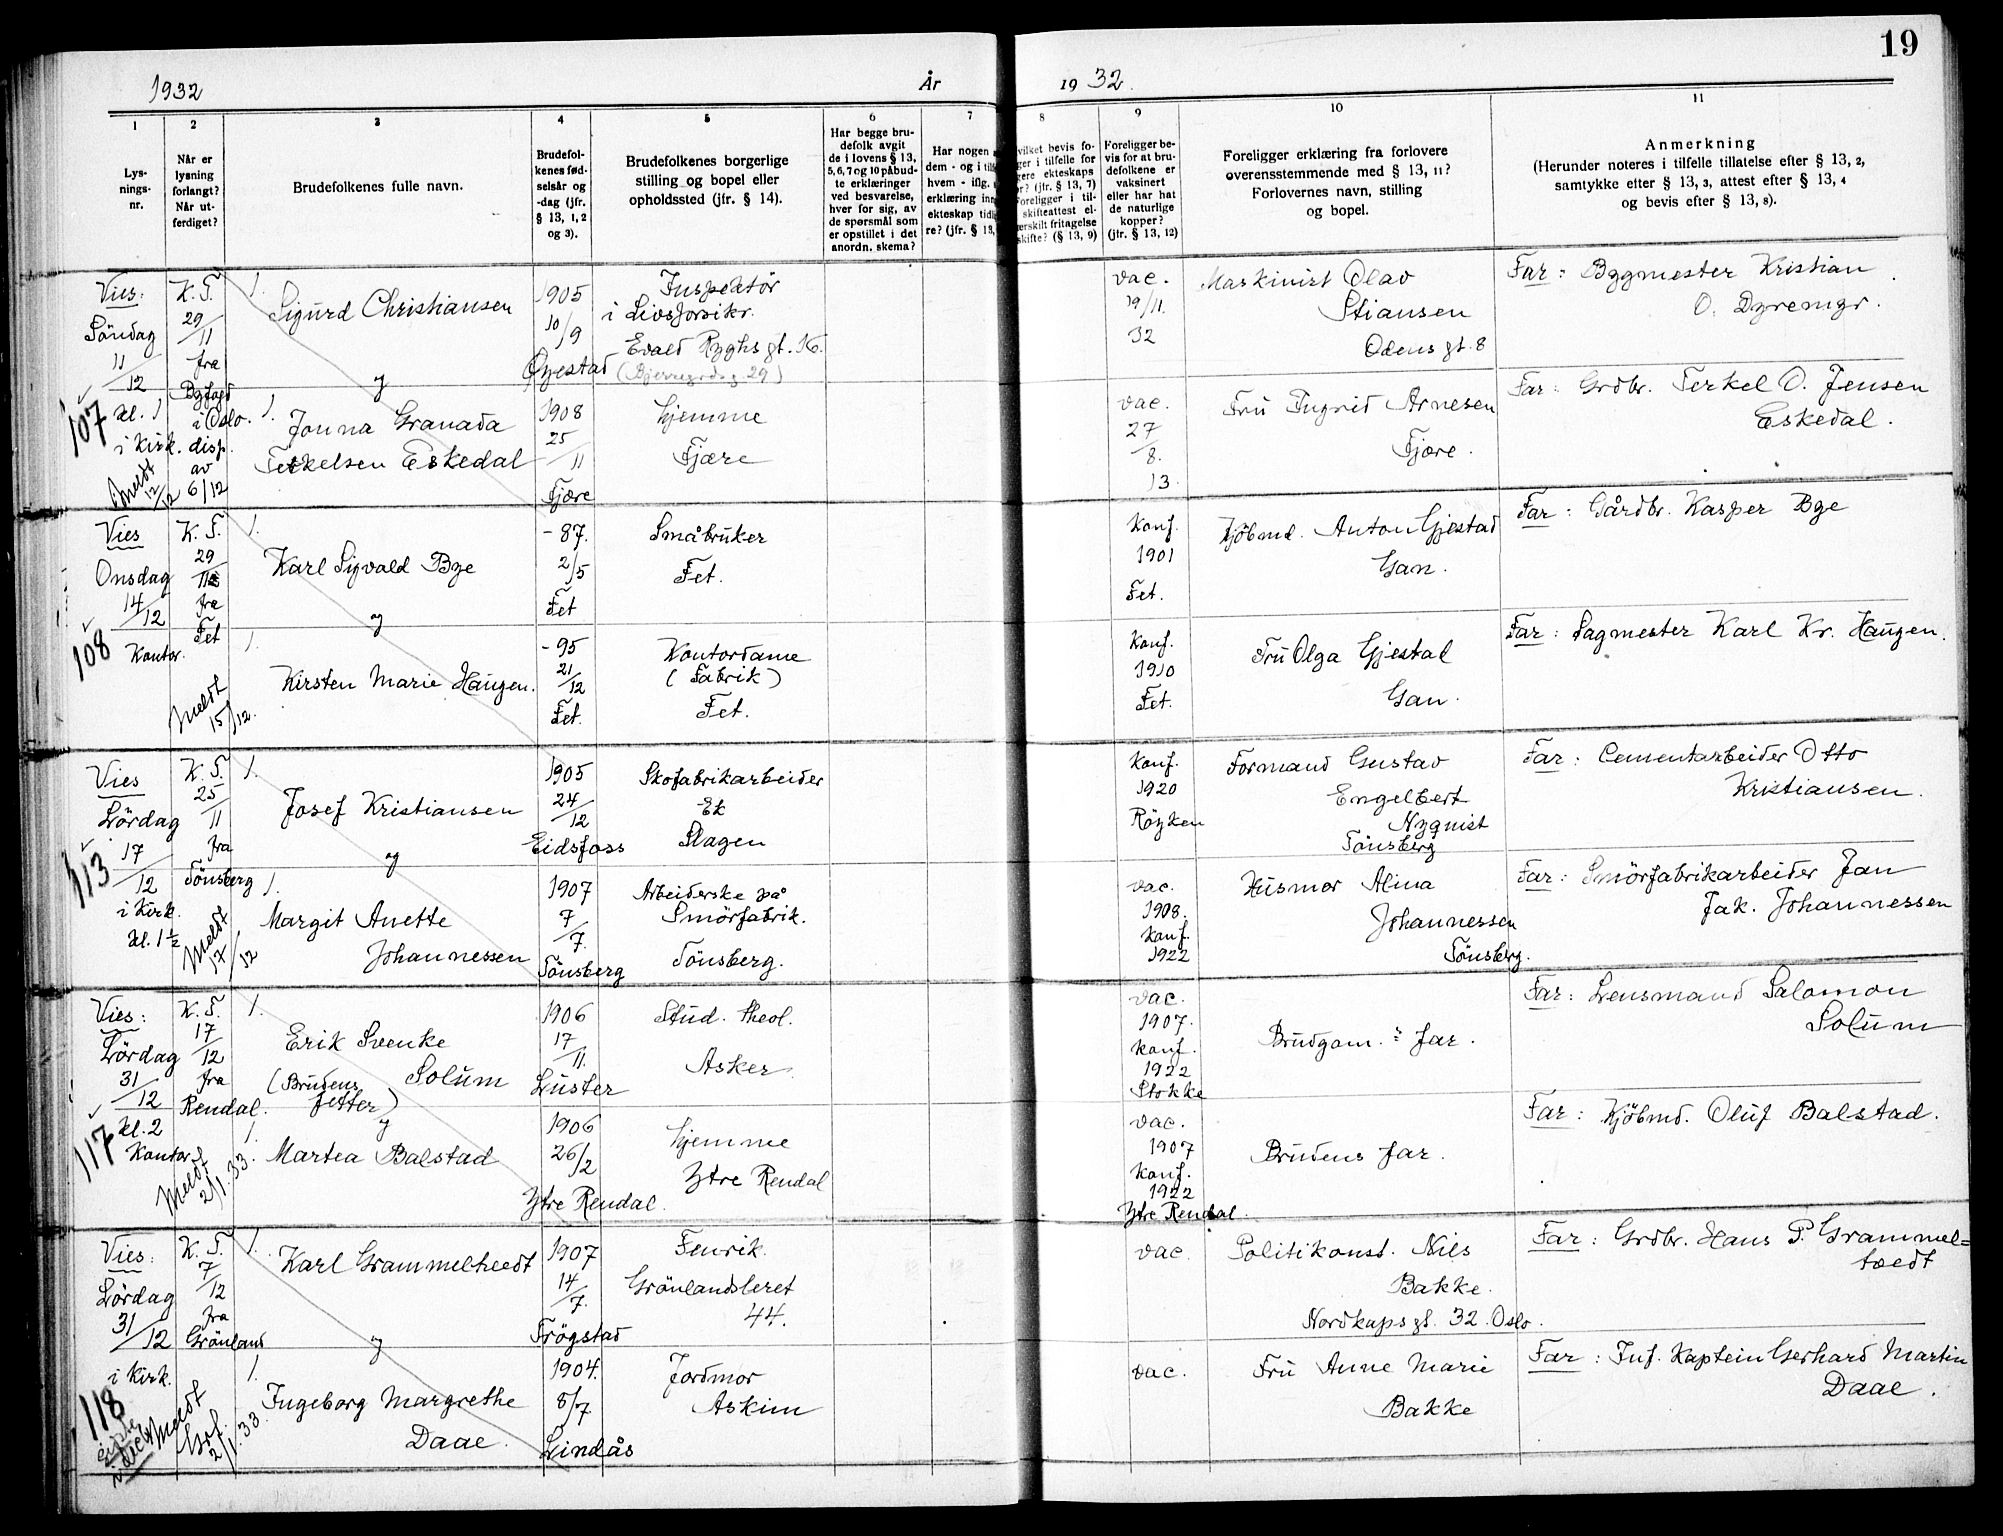 19
1932
År
19 32.
1
2
3
4
5
6
7
8
9
10
11
Lys-
nings-
nr.
Når er
lysning
forlangt?
Når ut-
ferdiget?
Brudefolkenes fulle navn.
Brudefol-
kenes fød-
selsår og
-dag (jfr.
§ 13, 1, 2
og 3).
Brudefolkenes borgerlige
stilling og bopel eller
opholdssted (jfr. § 14).
Har begge bru-
defolk avgit
de i lovens § 13,
5, 6, 7 og 10 påbud-
te erklæringer
ved besvarelse,
hver for sig, av
de spørsmål som
er opstillet i det
anordn. skema?
Har nogen
dem - og i
hvem - iflg.
erklæring
ekteskap
re? (jfr. § 13,
bevis fo-
i tilfelle for
ekteskaps
? (jfr. § 13, 7)
i til-
skifteattest el-
fritagelse
skifte? (§ 13, 9)
Foreligger be-
vis for at bru-
defolkene er
vaksinert
eller har hat
de naturlige
kopper?
(jfr. § 13, 12)
Foreligger erklæring fra forlovere
overensstemmende med § 13, 11?
Forlovernes navn, stilling
og bopel.
Anmerkning
(Herunder noteres i tilfelle tillatelse efter § 13, 2,
samtykke efter § 13, 3, attest efter § 13, 4
og bevis efter § 13, 8).
107
Vies:
Söndag
11/12
kl. 1
i Kirk.
Meldt
12/12
K. T.
29/11
fra
Byfogd
i Oslo.
disp.
av
6/12
1.
Sigurd Christiansen
og
1905
10/9
Øyestad
Inspektør
i Livsforsikr.
Evald Ryghs gt. 16.
vac.
19/11.
32
Maskinist Olav
Stiansen
Odens gt. 8
Far: Byggmester Kristian
O. Dyremyr.
1.
Jonna Granada
Terkelsen Eskedal
1908
25/11
Fjære
hjemme
Fjære
vac.
27/8.
13.
Fru Ingrid Arnesen
Fjære.
Far: Grdbr. Terkel O. Jensen
Eskedal.
108
Vies
Onsdag
14/12
Kontor.
Meldt
15/12.
K. T.
29/11
fra
Fet
1.
Karl Sigvald Bye
og
- 87.
2/5
Fet
Småbruker
Fet.
Konf.
1901
Fet.
Kjöbmd. Anton Gjestad
Gan.
Far: Gårdbr. Kasper Bye
1.
Kirsten Marie Haugen.
- 95
21/12
Fet.
Kontordame
(Fabrik)
Fet.
Konf.
1910
Fet.
Fru Olga Gjestal
Gan.
Far: Sagmester Karl Kr. Haugen.
113
Vies
Lördag
17/12
i Kirk.
kl. 1½
Meldt
17/12
K. T.
25/11
fra
Tönsberg
1.
Josef Kristiansen
og
1905
24/12
Eidsfoss
Skofabrikarbeider
Ek
Slagen
Konf.
1920
Röyken
Formand Gustav
Engelbert
Nyquist
Tönsberg
Far: Cementarbeider Otto
Kristiansen.
1.
Margit Anette
Johannessen
1907
7/7.
Tönsberg
Arbeiderske på
Smörfabrik.
Tönsberg.
vac.
1908.
Konf.
1922
Husmor Alina
Johannessen
Tönsberg.
Far: Smörfabrikarbeider Jan
Jak. Johannessen
117
Vies:
Lördag
31/12
kl. 2
Kontor
Meldt
2/1.33.
K. T.
17/12
fra
Rendal.
1.
Erik Svenke
Solum
(Brudens
fetter)
og
1906
17/11.
Luster
Stud. theol.
Asker
vac.
1907.
Konf.
1922
Stokke
Brudgom.s far.
Far: Lensmand Salomon
Solum
1.
Martea Balstad
1906
26/2
Ytre Rendal.
hjemme
Ytre Rendal
vac.
1907
Konf.
1922
Ytre Rendal.
Brudens far.
Far: Kjöbmd. Oluf Balstad.
118
Vies:
Lördag
31/12
i Kirk.
Meldt
2/1.33.
K. T.
7/12
fra
Grönland
1.
Karl Grammeltvedt
og
1907
14/7.
Trögstad
Fenrik.
Grönlandsleret
44.
vac.
Politikonst. Nils
Bakke.
Nordkaps gt. 32. Oslo.
Far: Grdbr. Hans P. Grammel=
tvedt
1.
Ingeborg Margrethe
Daae.
1904.
8/7
Lindås
Jordmor
Askim
vac.
Fru Anne Marie
Bakke
Far: Inf. Kaptein Gerhard Martin
Daae.